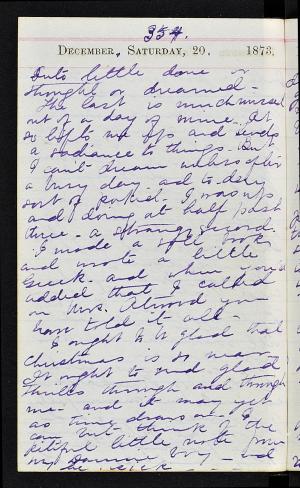 354.
DECEMBER, SATURDAY, 20. 1873.
little done or
thought or dreamed -
The last is much missed
out of a day of mine. It
so lifts me up and sends
a radiance to things. But
I can't dream unless after
a busy day. and to day
sort of I was up
and doing at half past
three - a strange record.
I made a book
and wrote a little
Greek. and when you've
added that I called
on Mrs. Almond you
have told it all -
I ought to be glad that
Christmas is so near
It ought to send glad
thrills through and through
me - and it may yet
as time draws on. I
can but think of the
pitiful little note from
my boy - and
be sick